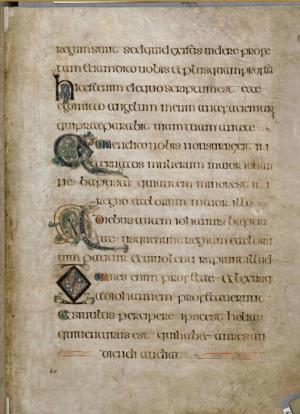 regum sunt sed quid existis uidere profe
tam etiam dico uobis et plus quam profetā
hic est enim de quo scriptum est ecce
ego mitto angelum meum ante faciem tuam
qui praeparabit uiam tuam ante te
Amen dico uobis non surrexit in
ter natos mulierum maior iohan
ne baptista qui autem minor est in
regno caelorum maior illo
A diebus autem iohannis baptis
tae usque nunc regnum caelorum
uim patitur et uiolenti rapiunt illud
Omnes enim profetae et lex usque
ad iohannem profetauerunt
et si uultis percipere ipse est helias
qui uenturus est qui habet aures au
diendi audiat